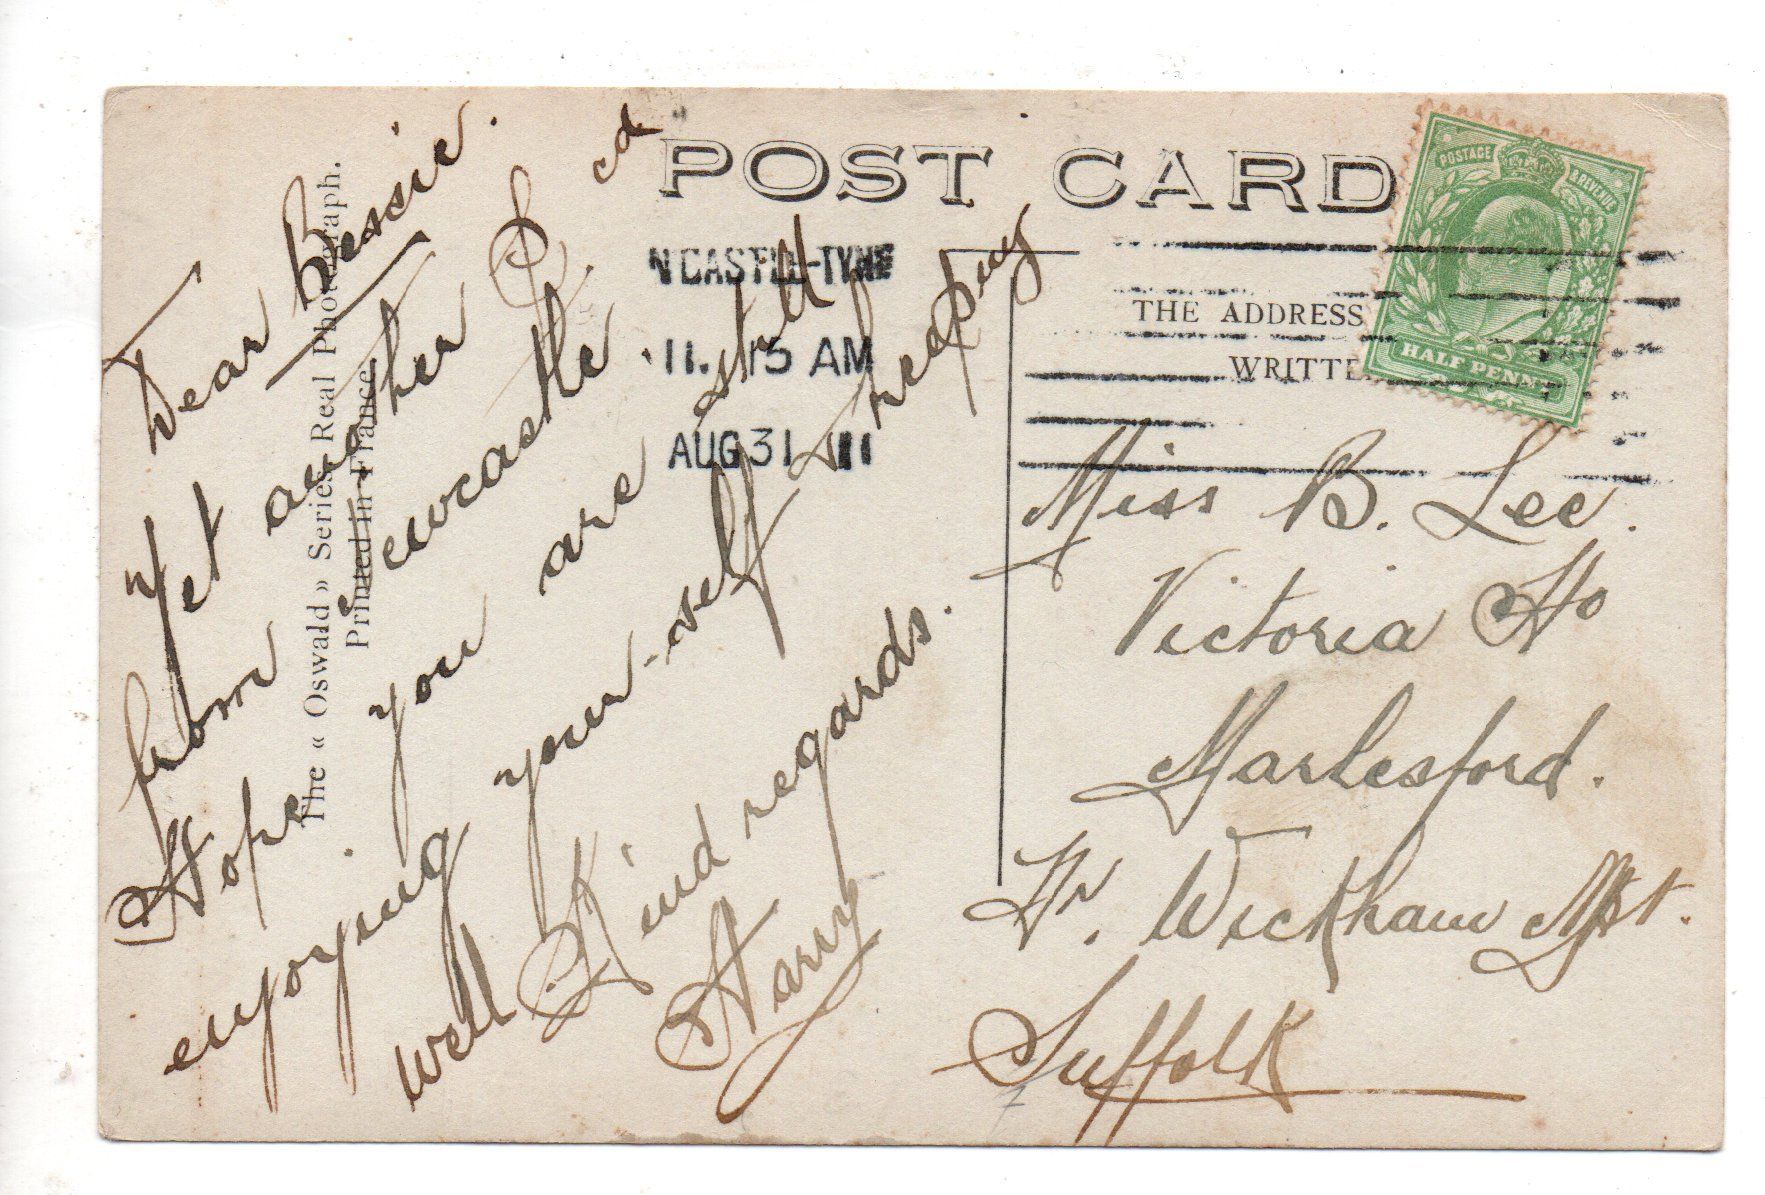 POST CARD
THE ADDRESS
WRITTE
POSTAGE & REVENUE
HALF PENNY
N'CASTLE-TYNE
11. 15 AM
AUG 31 11
The « Oswald » Series. Real Photograph.
Printed in France.
Dear Bessie.
Yet another P. cd
from Newcastle.
Hope you are still
enjoying your-self & keeping
well
Kind regards.
Harry
Miss B. Lee.
Victoria Ho
Marlesford.
Nr. Wickham Mkt.
Suffolk